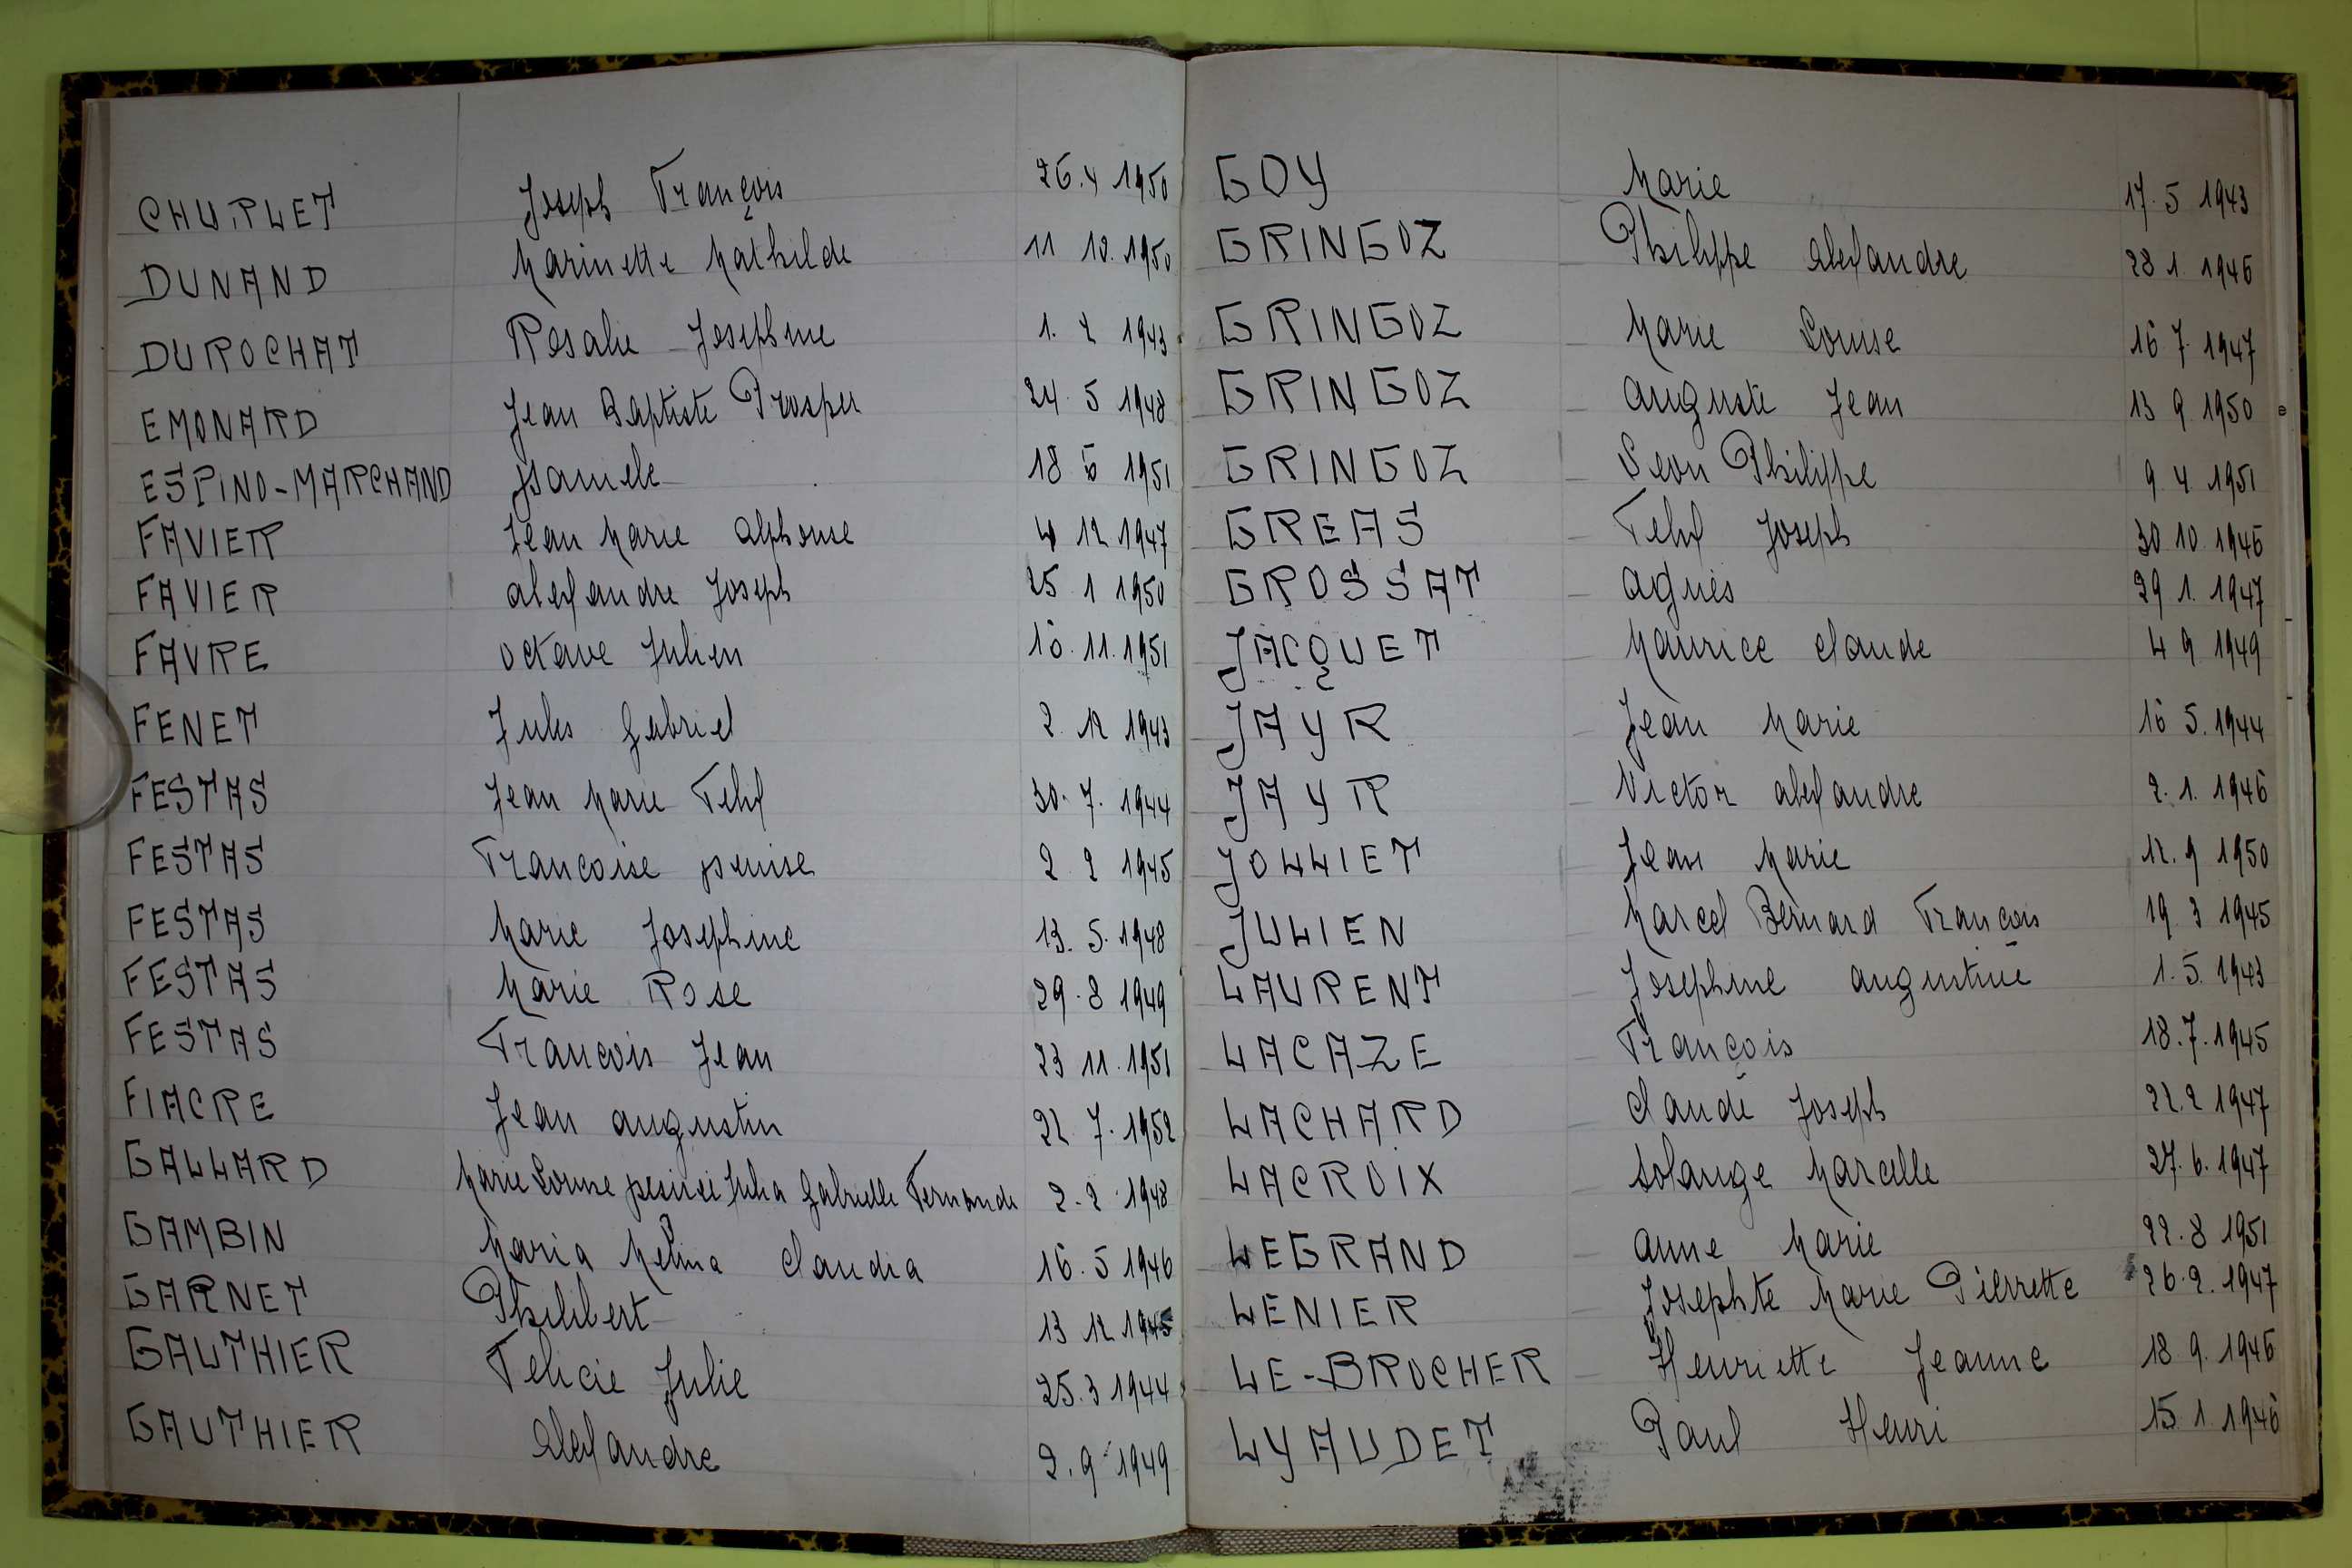 CHURLET Joseph François 26.4 1950
DUNAND Marinette Mathilde 11 10.1950
DUROCHAT Rosalie Josephine 1. 2 1943
EMONARD Jean Baptiste Prosper 24.5 1948
ESPINO-MARCHAND Daniele 18 6 1951
FAVIER Jean Marie Alphonse 4 12 1947
FAVIER Alexandre Joseph 25 1 1950
FAVRE Octave Julien 10.11.1951
FENET Jules Gabriel 2. 12 1943
FESTAS Jean Marie Felix 30.7.1944
FESTAS Francoise Denise 2 2 1945
FESTAS Marie Josephine 13.5.1948
FESTAS Marie Rose 29.8 1949
FESTAS Francois Jean 23 11.1951
FIACRE Jean Augustin 22 7.1952
GALLARD Marie Louise Desirée Julia Gabrielle Fernande 2.2 1948
GAMBIN Maria Melina Claudia 16.5 1946
GARNET Philibert 13 12 1945
GAUTHIER Felicie Julie 25.3 1944
GAUTHIER Alexandre 2.9 1949
GOY Marie 17.5 1943
GRINGOZ Philippe Alexandre 28 1. 1946
GRINGOZ Marie Louise 16 7 1947
GRINGOZ Auguste Jean 13 9 1950
GRINGOZ Leon Philippe 9 4 1951
GREAS Felix Joseph 30 10 1946
GROSSAT Agnès 29 1. 1947
JACQUET Maurice Claude 4 9 1949
JAYR Jean Marie 16 5.1944
JAYR Victor Alexandre 2.1.1946
JOLLIET Jean Marie 12.9 1950
JULIEN Marcel Bernard Francois 19 3 1945
LAURENT Josephine Augustine 1.5.1943
LACAZE François 18.7.1945
LACHARD Claude Joseph 22.2 1947
LACROIX Solange Marcelle 27.6.1947
LEGRAND Anne Marie 22.8 1951
LENIER Josephte Marie Pierrette 26.2.1947
LE-BROCHER Henriette Jeanne 18 9.1946
LYAUDET Paul Henri 15 1.1946